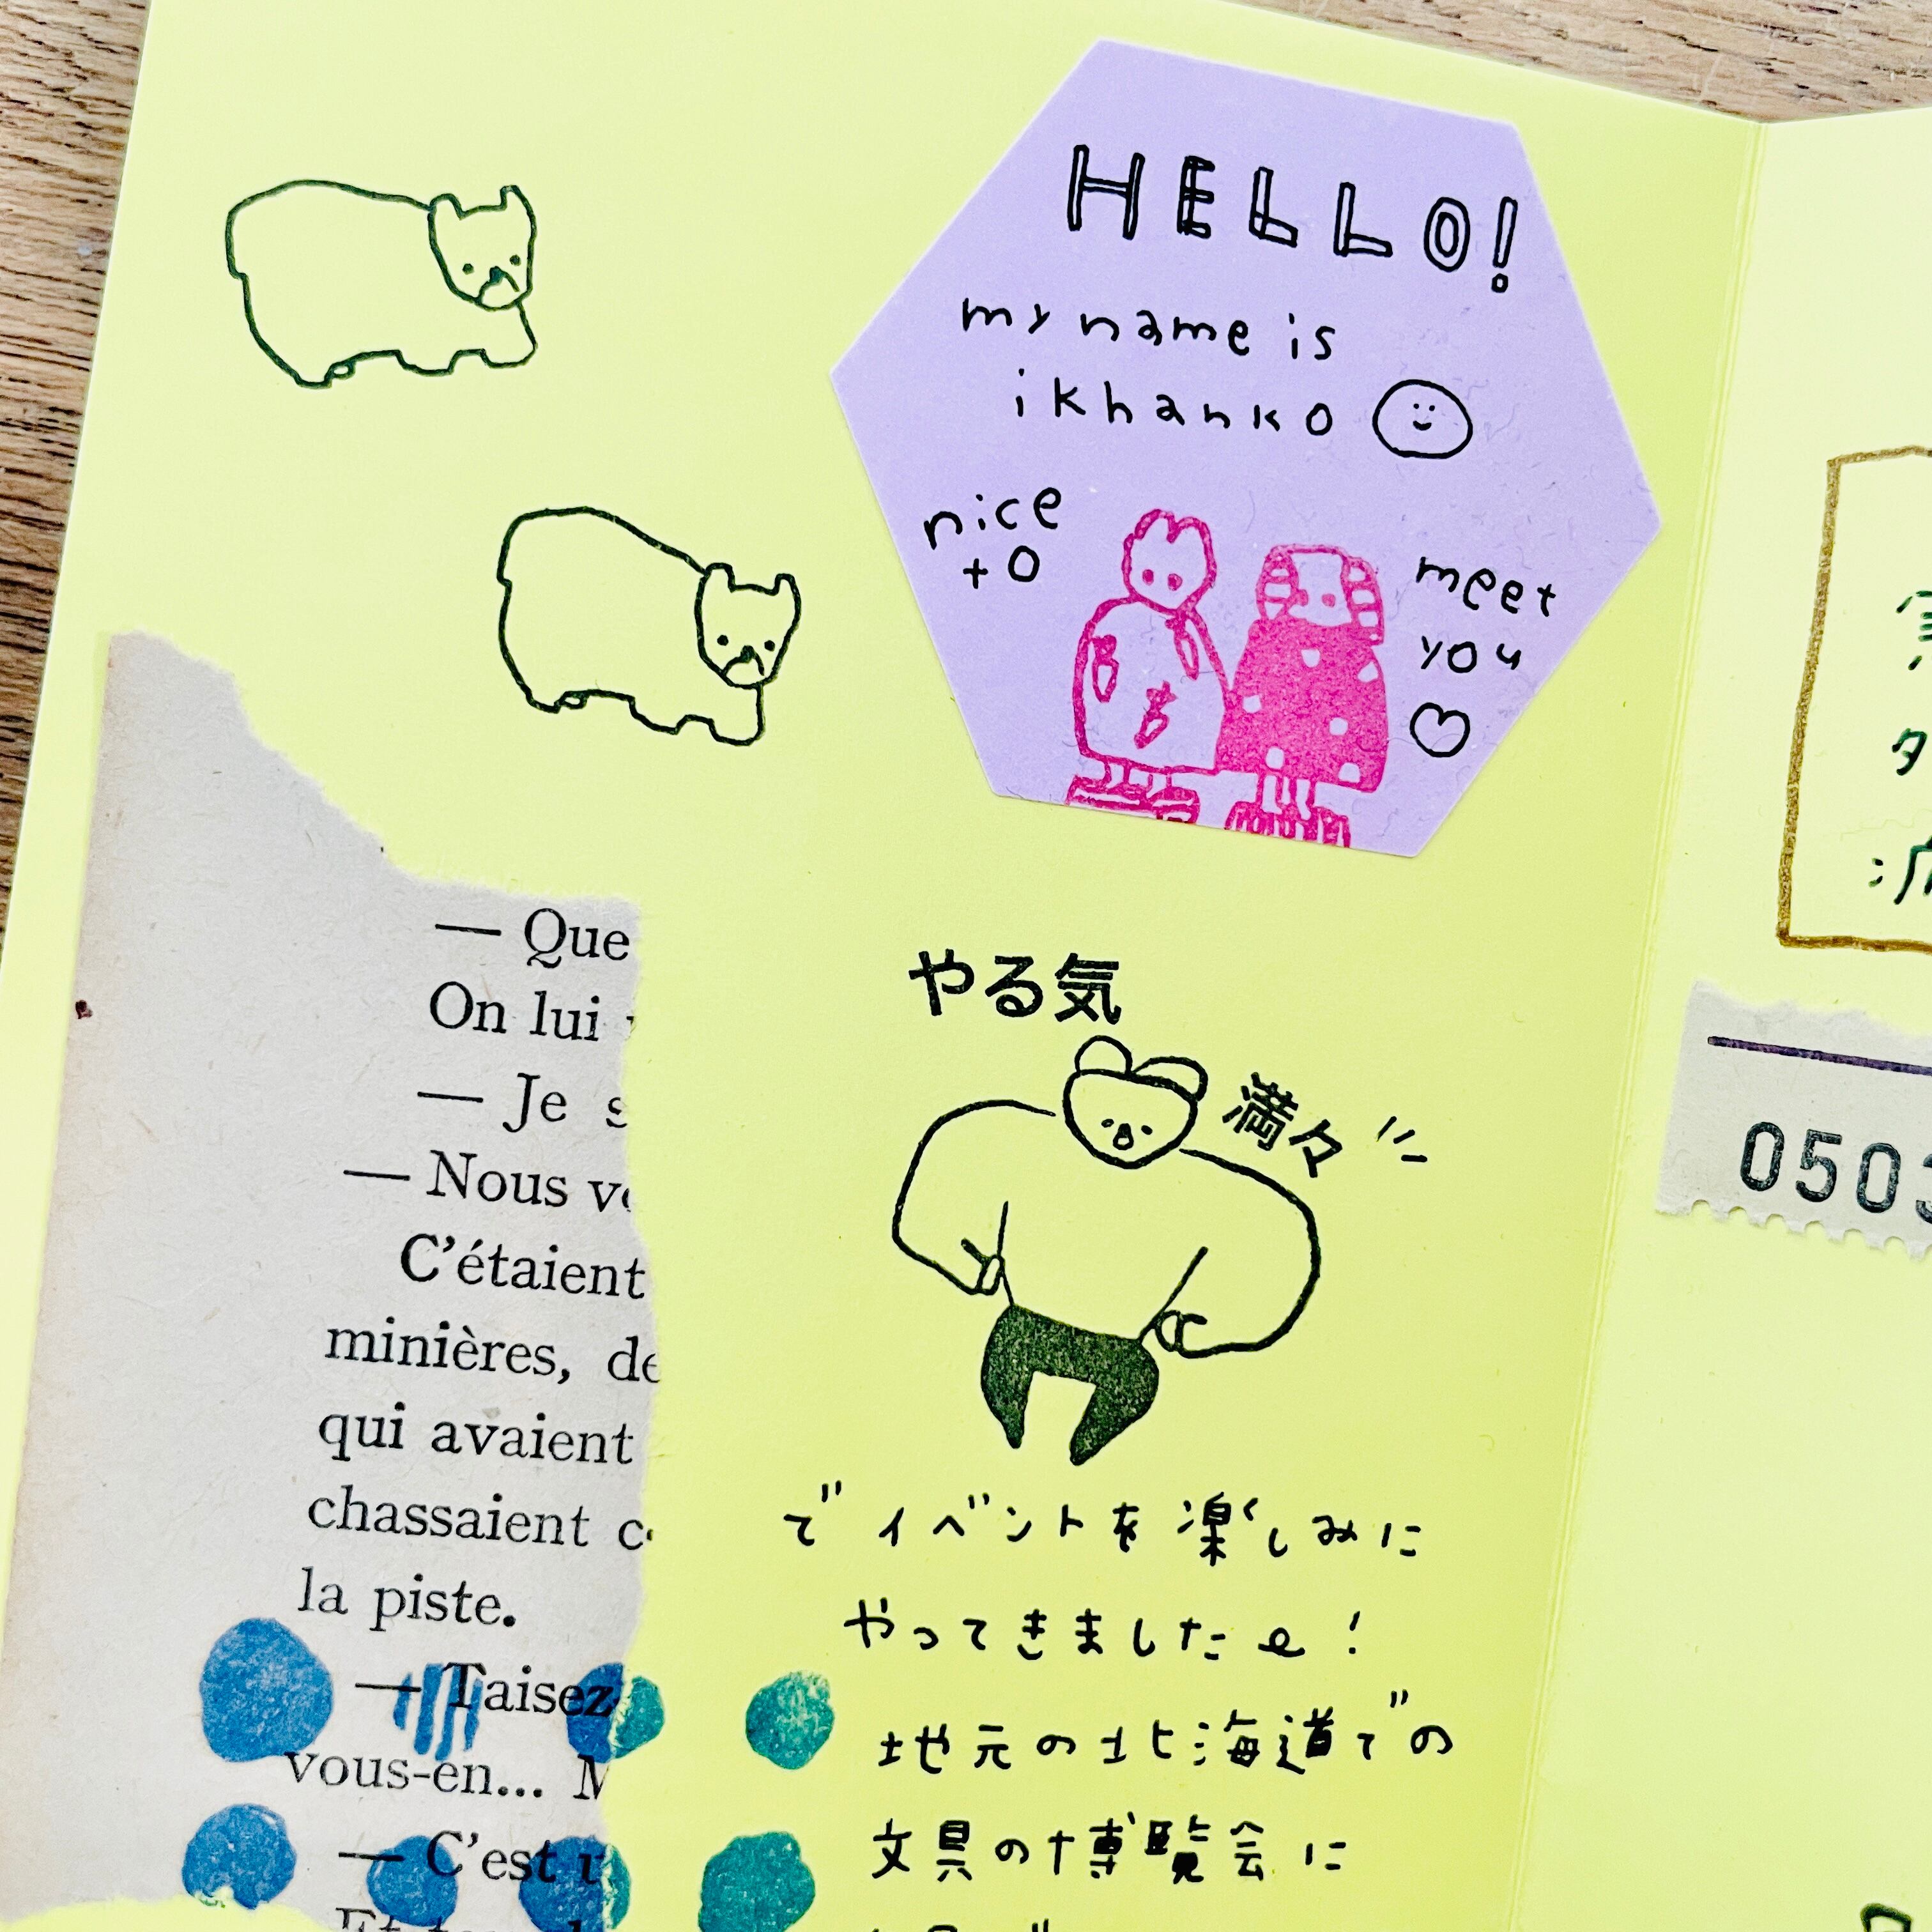 HELLO!
my name is
ikhanko
nice
to
meet
you
— Que
On lui
— Je
— Nous
C'étaient
minières,
qui avaient
chassaient
la piste.
— Taisez
vous-en...
— C'est
やる気
満々
でイベントを楽しみに
やってきました!
地元の北海道での
文具の博覧会に
タ
0503